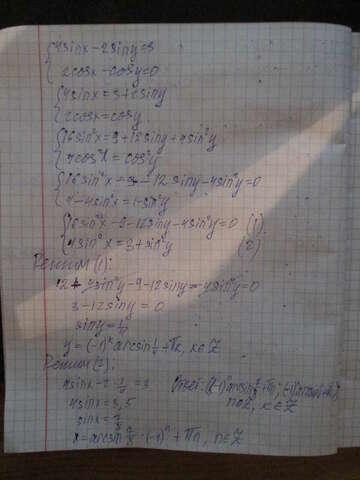 4sinx-2siny=3
2cosx-cosy=0
4sinx=3+2siny
2cosx=cosy
16sin²x=9+12siny+4sin²y
4cos²x=cos²y
16sin²x-9-12siny-4sin²y=0
4-4sin²x=1-sin²y
16sin²x-9-12siny-4sin²y=0 (1)
4sin²x=3+sin²y (2)
Решим (1):
12+4sin²y-9-12siny-4sin²y=0
3-12siny=0
siny=1/4
y=(-1)ᵏarcsin 1/4+πk, k∈Z
Решим (2):
4sinx-2·1/4=3
4sinx=3,5
sinx=7/8
x=arcsin 7/8·(-1)ⁿ+πn, n∈Z
Ответ:
n∈Z, k∈Z